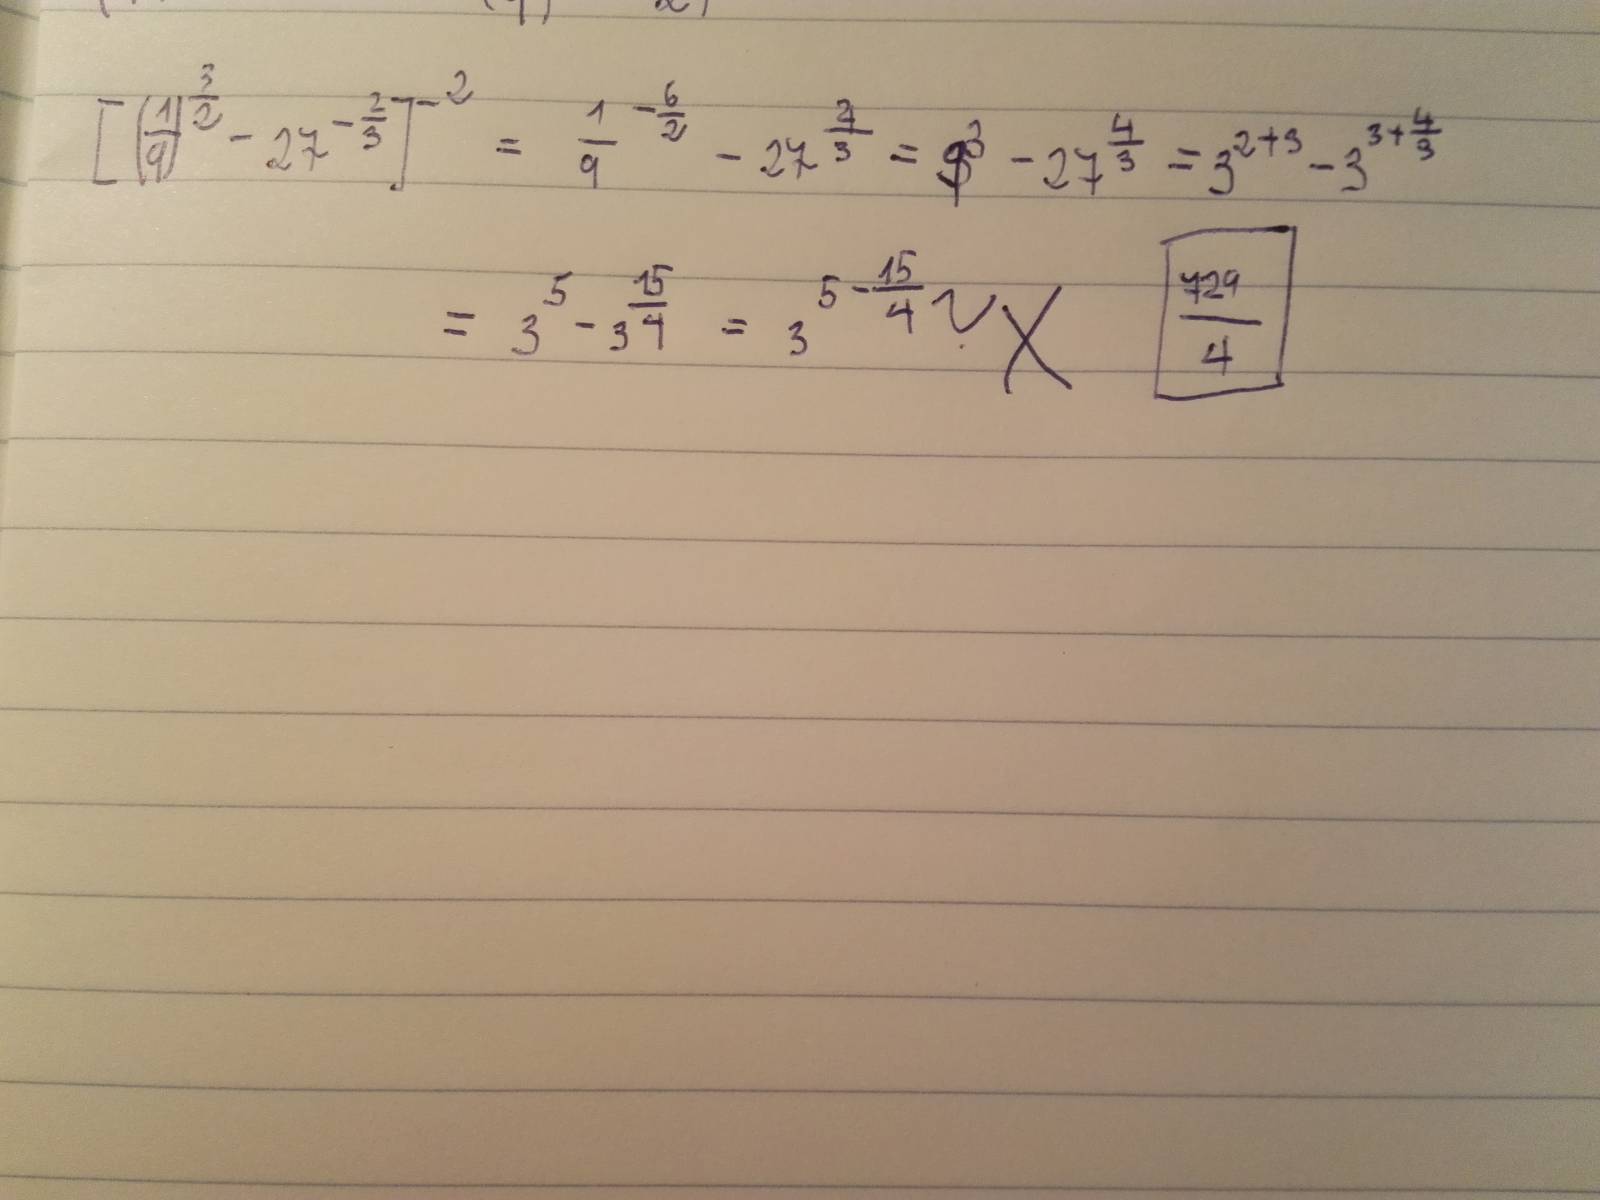 [(1/9)^(3/2) - 27^(-2/3)]^(-2) = 1/9^(-6/2) - 27^(4/3) = 9^3 - 27^(4/3) = 3^(2+3) - 3^(3+4/3)
= 3^5 - 3^(15/4) = 3^(5-15/4) ? X 729/4